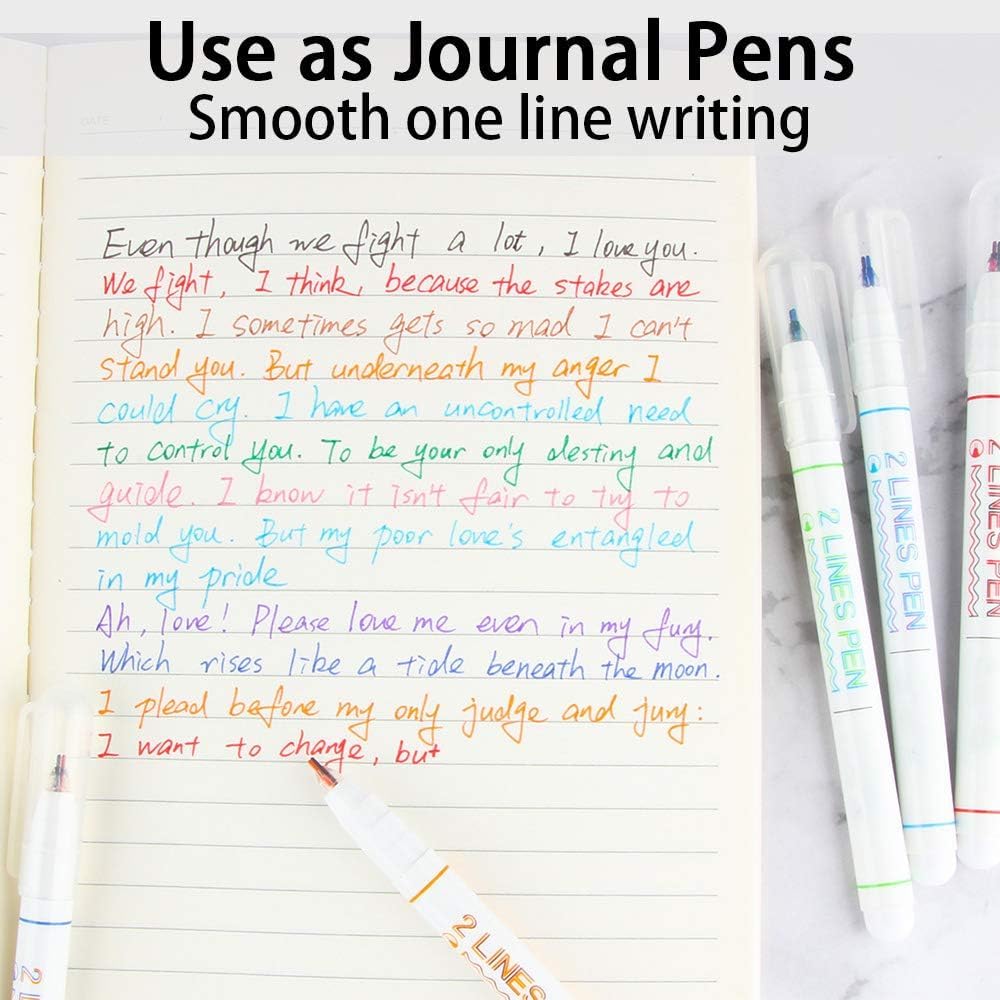 Use as Journal Pens
Smooth one line writing
DATE
Even though we fight a lot, I love you.
We fight, I think, because the stakes are
high. I sometimes gets so mad I can't
stand you. But underneath my anger I
could cry. I have an uncontrolled need
to control you. To be your only destiny and
guide. I know it isn't fair to try to
mold you. But my poor love's entangled
in my pride
Ah, love! Please love me even in my fury.
Which rises like a tide beneath the moon.
I plead before my only judge and jury:
I want to change, but
2 LINES PEN
2 LINES PEN
2 LINES PEN
2 LINES
2 L